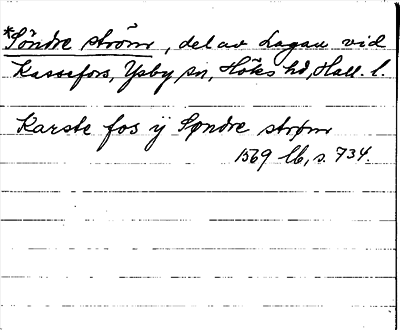 *Söndre ström, del av Lagan vid
Kassefors, Ysby sn, Höks hd, Hall. l.
Karste fos ÿ Søndre strøm
1569 lb, s. 734.